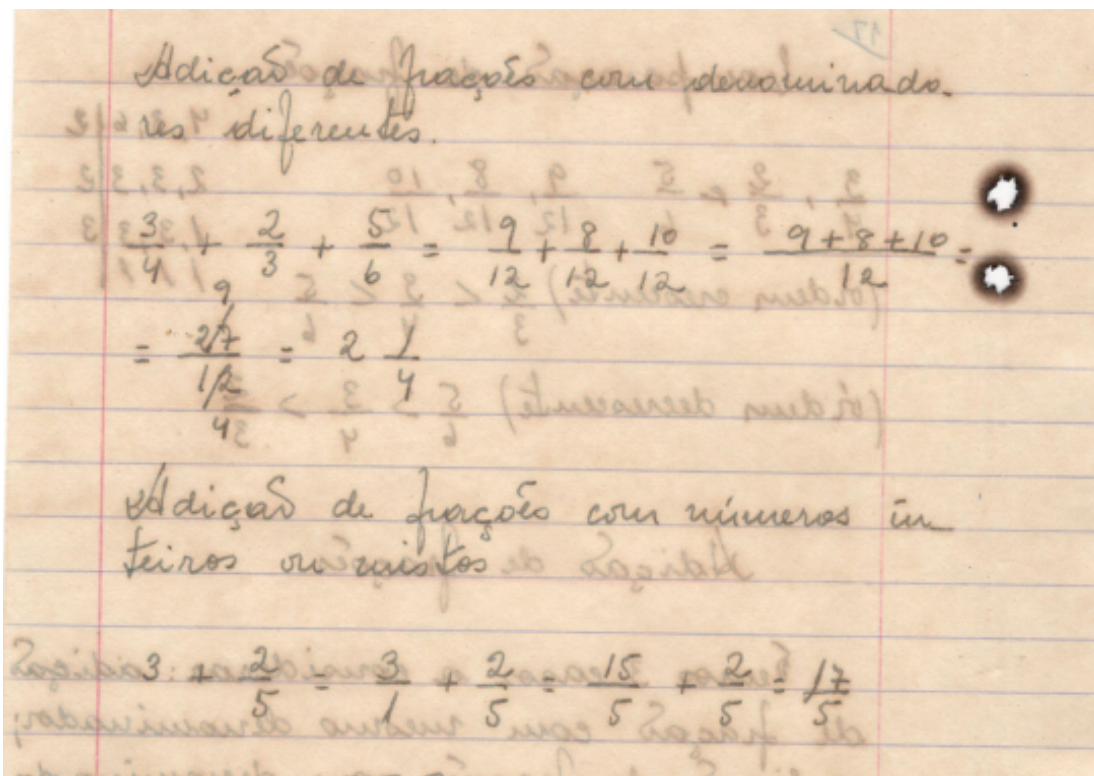 17
Adição de frações com denominado-
res diferentes.
3/4 + 2/3 + 5/6 = 9/12 + 8/12 + 10/12 = 9+8+10/12 =
= 27/12 = 2 1/4
9
4
Adição de frações com números in
teiros ou mistos
3 + 2/5 = 3/1 + 2/5 = 15/5 + 2/5 = 17/5